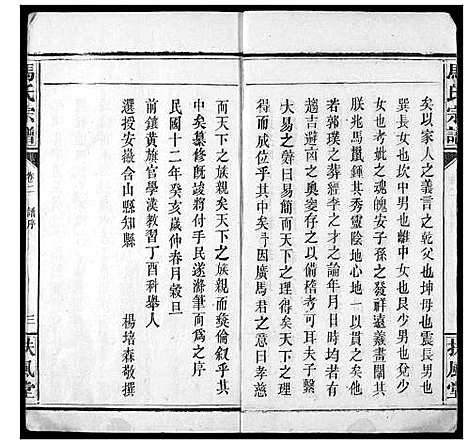 馬氏宗譜
扶風堂
矣以家人之義言之乾父也坤母也震長男也
巽長女也坎中男也離中女也艮少男也兌少
女也考妣之魂魄安于子孫之發祥遠叢書闢其
朕兆馬鬣鍾其秀靈陰地心地一以貫之矣亦
若郭璞之葬經李才之論年月日時均若有
趨吉避凶之奧妾存之以備稽考可耳夫子繫
大易之辭曰易簡而天下之理得矣天下之理
得而成位乎其中矣吾因廣馬君之意曰孝慈
而天下之族親矣天下之族親而彝倫敘乎其
中矣慕修既竣將付手民遂滌筆而為之序
民國十二年癸亥歲仲春月穀旦
前鑲黃旗官學漢教習丁酉科舉人
選授安徽含山縣知縣 楊培森敬撰
馬氏宗譜
卷二 譜序
三
扶風堂